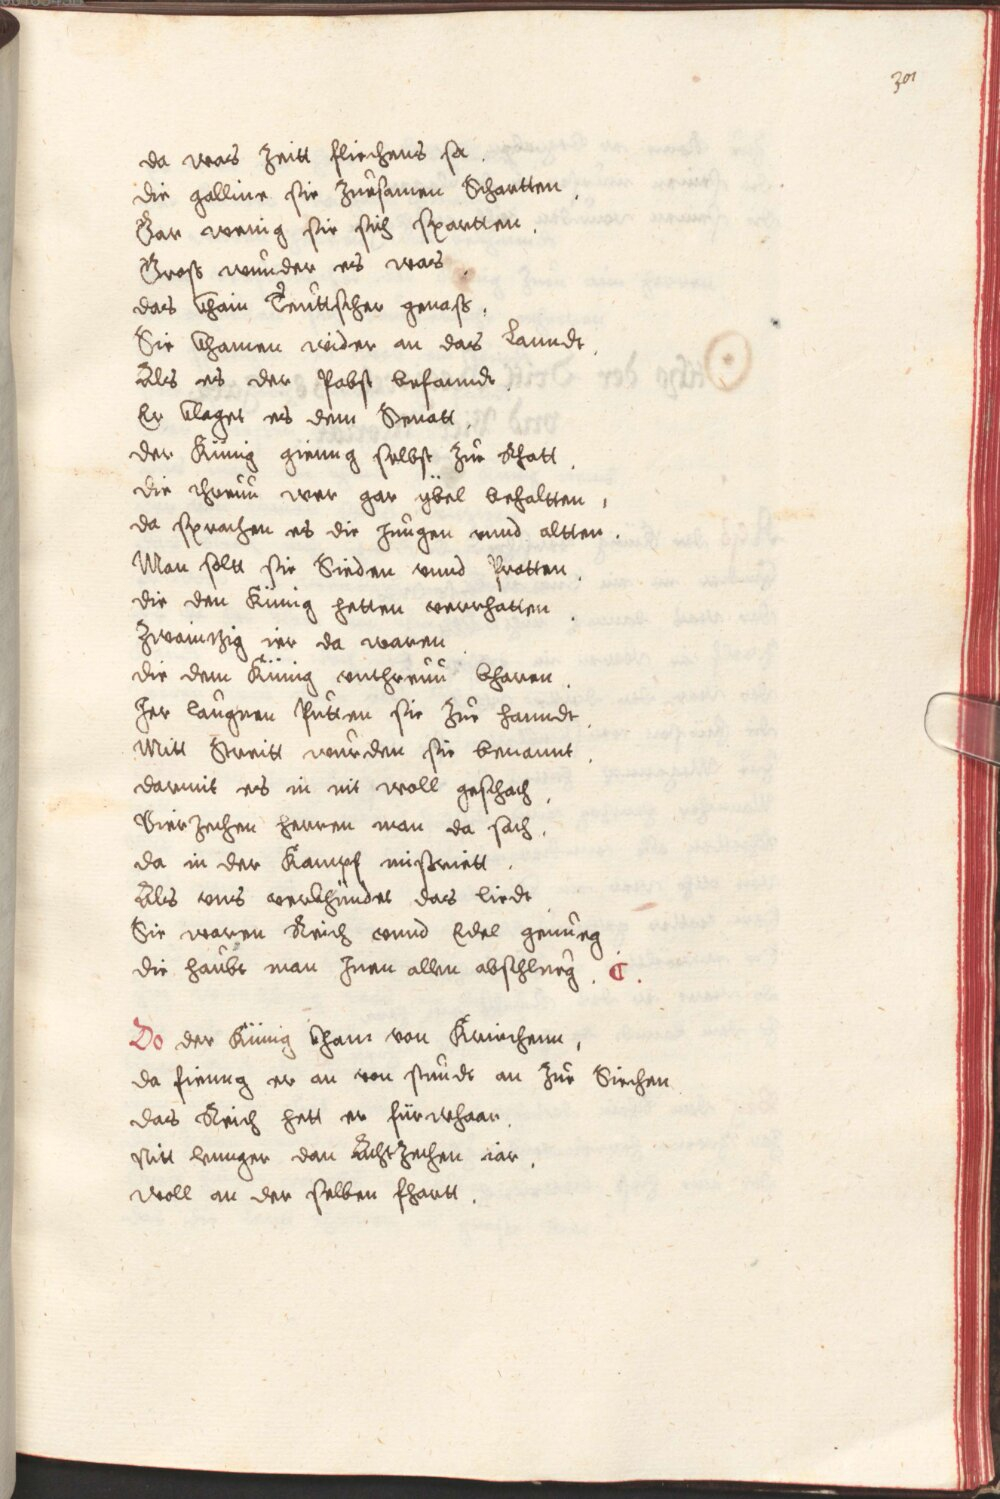 301
da was Zeitt fliechens sa .
die galline sie Zuesamen Schartten .
Gar wenig sie sich spartten .
Gross wunder es was .
das khain Teuttscher genass .
Sie khamen wider an das Lanndt .
Als es der Pabst befanndt .
Er klaget es dem Senatt .
der Künig gienng selbst Zue Rhatt .
die threuu wer gar ybel behaltten ,
da sprachen es die Jungen vnnd altten .
Man soltt sie Sieden vnnd Protten .
die den Künig hetten verrhatten .
Zwaintzig ier da waren .
die dem Künig vnthreuu bharen .
Jer laugnen Putten sie Zue hanndt .
Mitt Streitt wurden sie benannt .
darmit es in nit woll geschach .
Vierzechen herren man da sach .
da in der Kampf missriett .
Als vns verkhündet das liedt
Sie waren Reich vnnd Edel genueg
die haubt man Jnen allen abschlueg . C .
Do der Künig kham von Kriechenn ,
da fienng er an von stundt an Zue Siechen
das Reich hett er fürwhaar .
Nitt lennger dan AchtZechen iar .
woll an der selben fhartt .